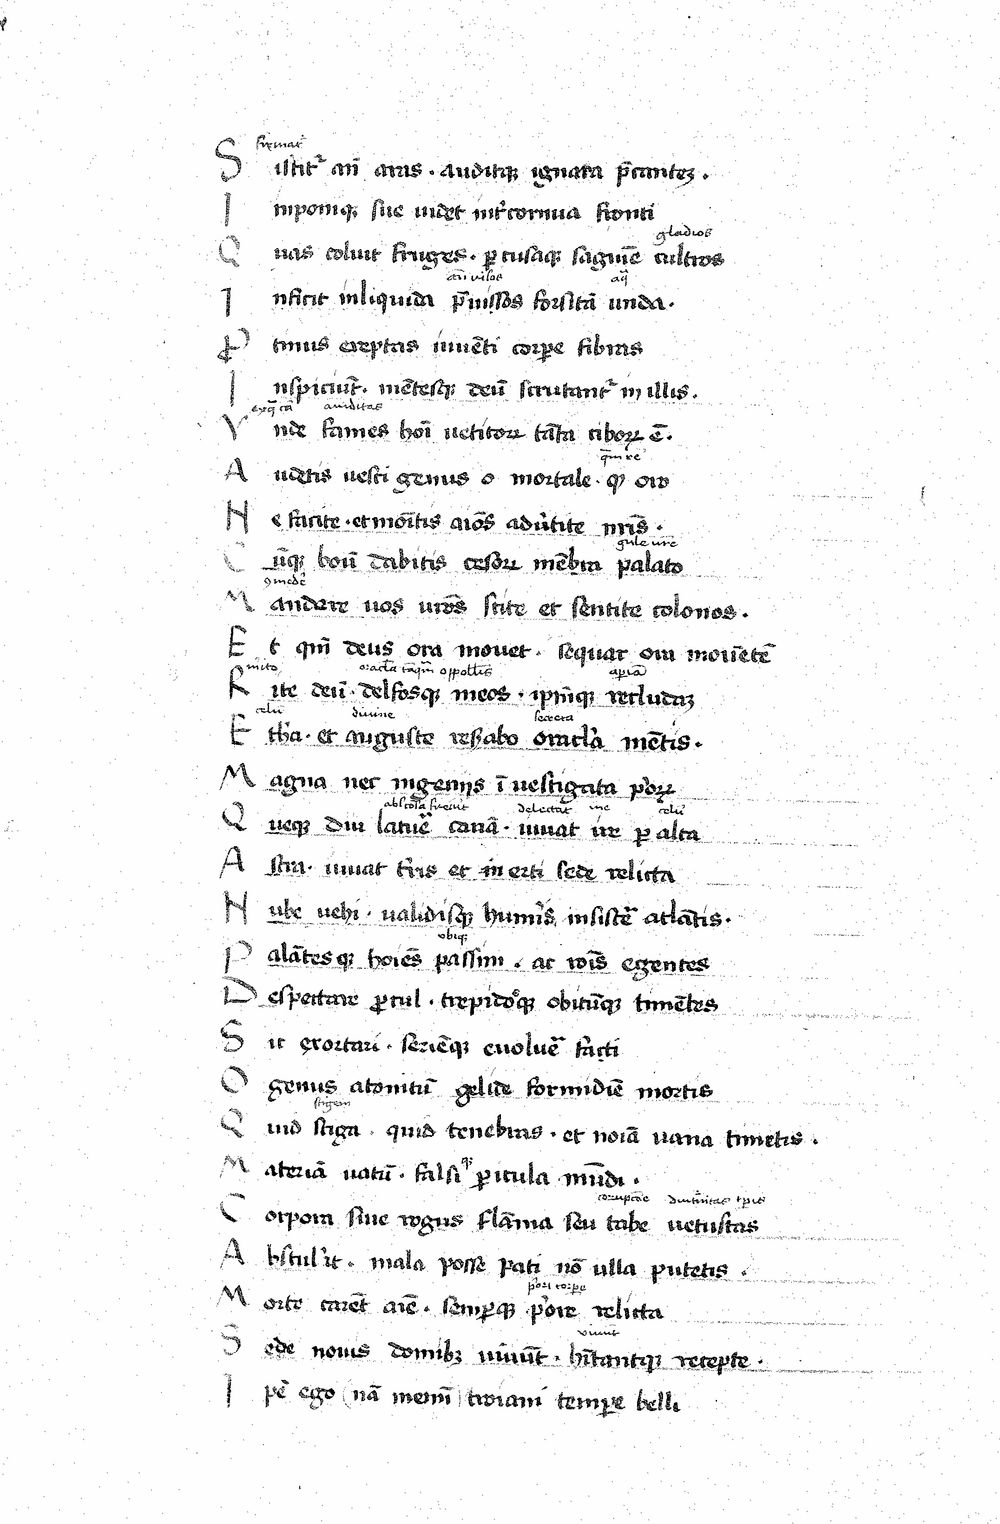 firmat᷑
Sistit᷑ an̄ aras · auditꝗꝫ ignara p̄canteꝫ ·
Inponiꝗꝫ sue uidet int͛ cornua fronti
gladios
Quas coluit fruges · ꝑcusaꝗꝫ sāguīe cultros
an̄ uisos aq̄
Inficit in liquida p̄uissos forsitā unda ·
Ꝓtinus ereptas iuuēti corꝑe fibras
Inspiciūt · mētesꝗꝫ deū scrutant᷑ in illis ·
ex q̄ cā auiditas
Vnde fames hoī uetitoꝝ tāta ciboꝝ ē ·
Audetis uesci genus o mortale · ꝙ oro
Ne facite · et monitis aīos aduͥtite nr̄is ·
gule ur̄e
Cūꝗꝫ boū dabitis cesoꝝ mēbra palato
ꝯmedē
Mandere uos uros̄ scite et sentite colonos ·
Et qm̄ deus ora mouet · sequar ora mouētē
rito oracl̄a tāqm̄ appoll̄is apiā
Rite deū · delfosꝗꝫ meos · ipm̄ꝗꝫ recludaꝫ
celū diuine secreta
Eth͛a · et auguste res͛abo oracl̄a mētis ·
Magna nec ingenijs īuestigata p͛oꝝ
abscōsa fuerūt delectat me celū
Queꝗꝫ diu latuēr canā · iuuat ire ꝑ alta
Astra · iuuat t͛ris et in erti sede relicta
Nube uehi · ualidisꝗꝫ hum͛is insistēr atlātis ·
ubiꝗꝫ
Palātesꝗꝫ hoīes passim · ac rōis egentes
Despectare ꝓcul · trepidosꝗꝫ obitūꝗꝫ timētes
Sic exortari · seriēꝗꝫ euoluēr facti
O genus atonitū gelide formidīe mortis
stigem
Quid stiga · quid tenebras · et noīa uana timetis ·
Materiā uatū · falsiꝗꝫ ꝑicula mūdi ·
corupcōe diuturnitas tꝑis
Corpora siue rogus flāma seu tabe uetustas
Abstul͛it · mala posse pati nō ulla putetis ·
p͛ori corꝑe
Morte carēt aīe · semꝑꝗꝫ p͛ore relicta
uiuūt
Sede nouis domibꝫ uiuūt · hītantꝗꝫ recepte ·
Ipē ego (nā memī) troiani temꝑe belli